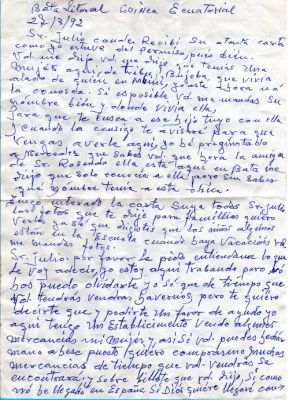 Bata Litoral Guinea Ecuatorial
27/3/92
Sr. Julio conde. Recibi su atenta carta
como yo estuve del permiso, pues bien.
Vd. me dijo vd. me dijo que tenia otra
mujer aquí, de tribu Bujeba que vivia
alado de quien en      , hasta Ahora no
la conosco. Si es posible vd. me mandas su
nombre bien y donde vivia ella
para que te busco a ese hijo tuyo con ella
y cuando la consigo te avisaré para que
vengas a verle aquí, yo he preguntado
a Mercedes que sabes vd. que hera la amiga
de     Rosendo ella esta aquí en Bata me
dijo que solo conocia a ella pero sin saber
que nombre tenia a esta chica.
Tengo enterado la carta suya todas Sr. Julio
las fotos que te dije para famillias quiero
verlas ya sé que dijistes que los niños algunos
estan en la Escuela cuando haya Vacación vd.
me mandas fotos.
Sr. Julio: por favor le pido entiendame lo que
le voy a decir, yo estoy aquí trabando pero no
hos puedo olvidarte yo sé que de tiempo que
vd. tendras vendras havernos pero te quiero
decirte que y pedirte un favor de ayuda yo
aquí tengo un Establicimiento vendo algunos
mercancias mi Mujer y, asi si vd. puedes hechar
mano a ese puesto quiero comprarme muchas
mercancias de tiempo que vd. vendrás se
encontrará y sobre billete que vd. dijo si como
no he llegado en España si Dios quiere llegaré con